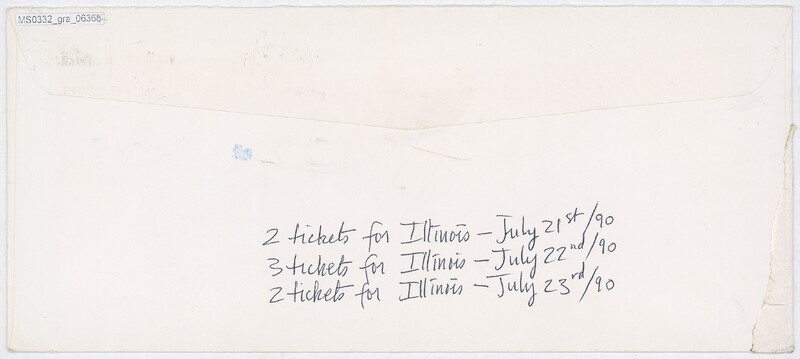 MS0332_gra_06366
2 tickets for Illinois - July 21st/90
3 tickets for Illinois - July 22nd/90
2 tickets for Illinois - July 23rd/90